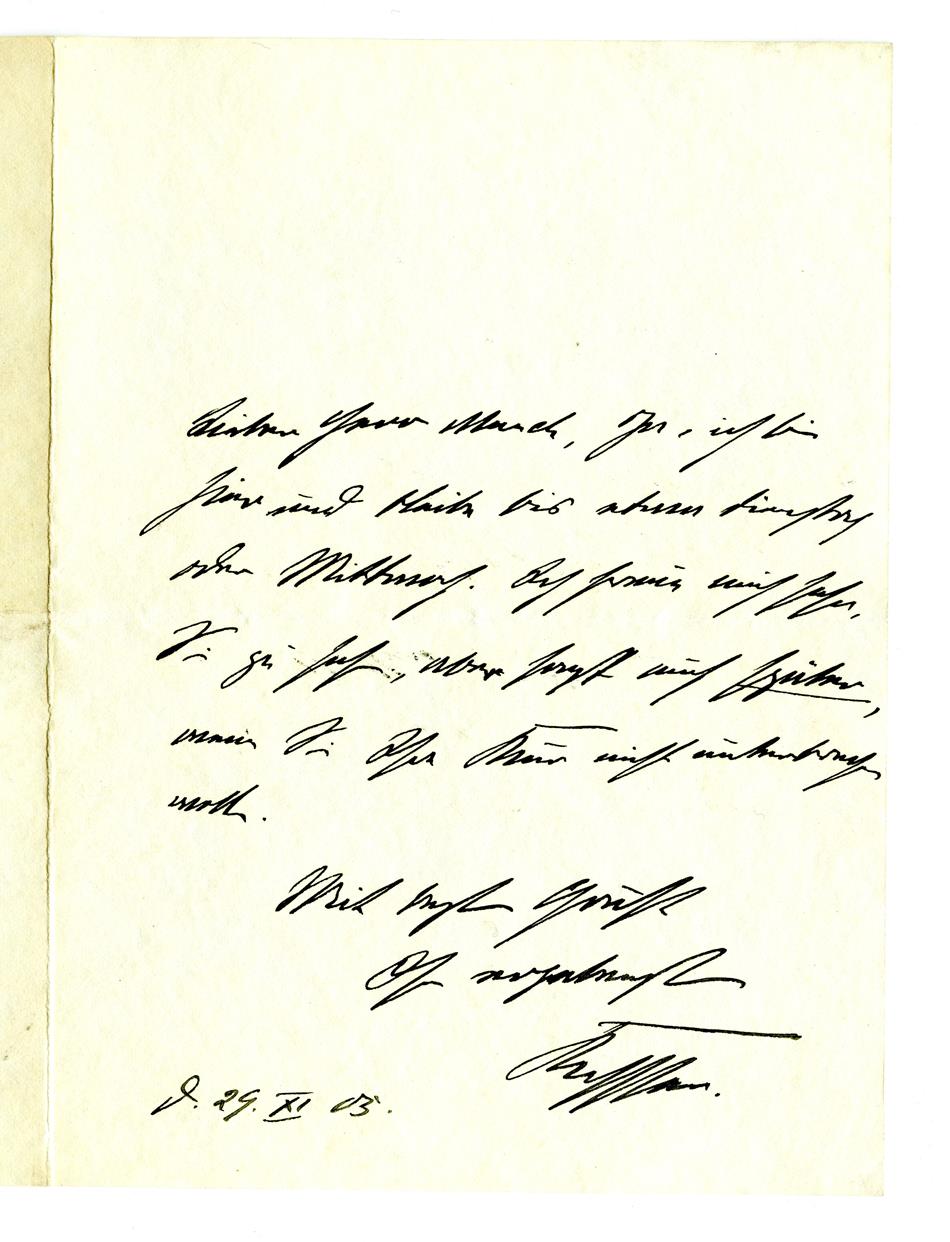 Lieber Herr Munch, Ja, ich bin
hier und bleibe bis etwa Dienstag
oder Mittwoch. Ich freue mich sehr,
Sie zu sehen, aber erst später,
wenn Sie Ihre Kur nicht unterbrechen
wollen.
Mit besten Grüßen
Ihr ergebenster
Kessler.
d. 29. XI 05.